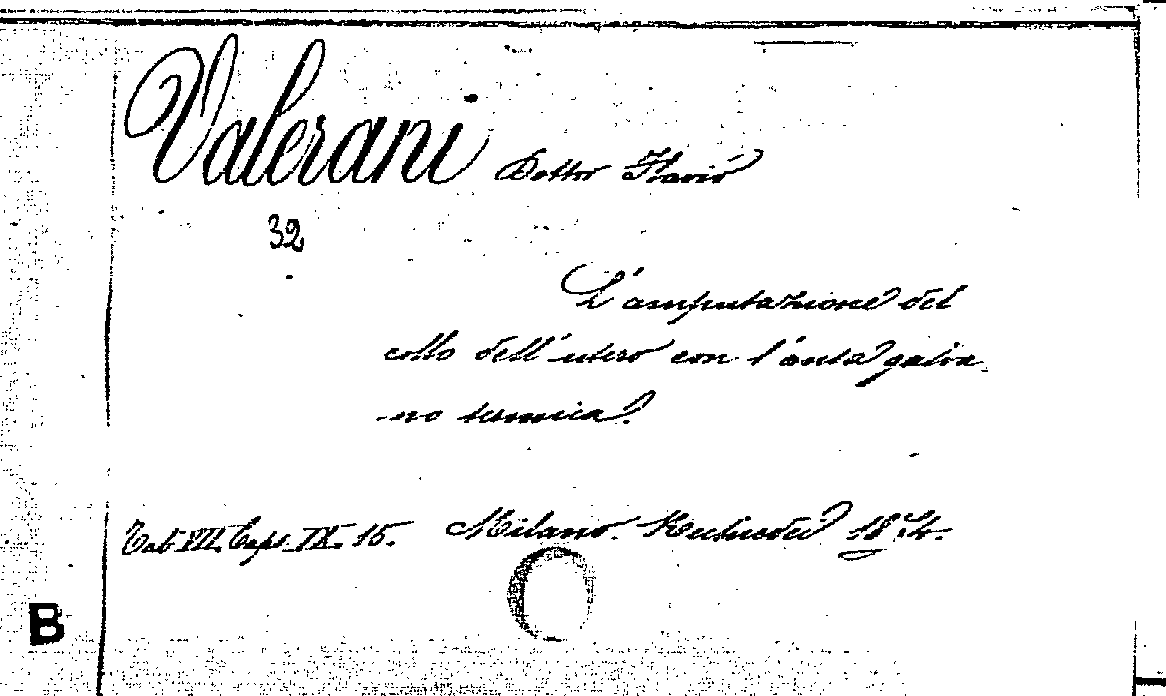 Valerani Dottor Flavio
32
L'amputazione del
collo dell'utero con l'ansa galva
-no termica.
Tab. VII. Caps. IX. 15. Milano. Rechiedei 1874.
B